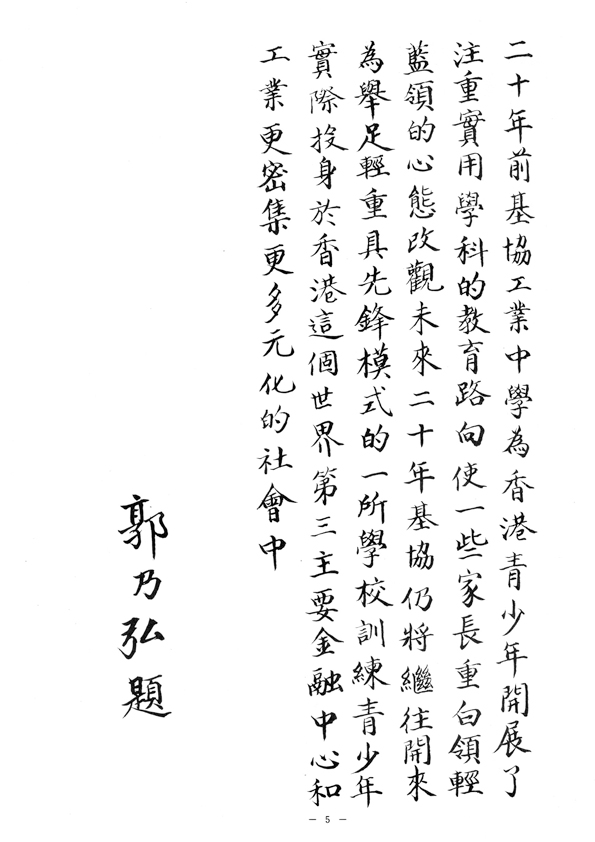 二十年前基協工業中學為香港青少年開展了
注重實用學科的教育路向使一些家長重白領輕
藍領的心態改觀未來二十年基協仍將繼往開來
為舉足輕重具先鋒模式的一所學校訓練青少年
實際投身於香港這個世界第三主要金融中心和
工業更密集更多元化的社會中
郭乃弘題
— 5 —